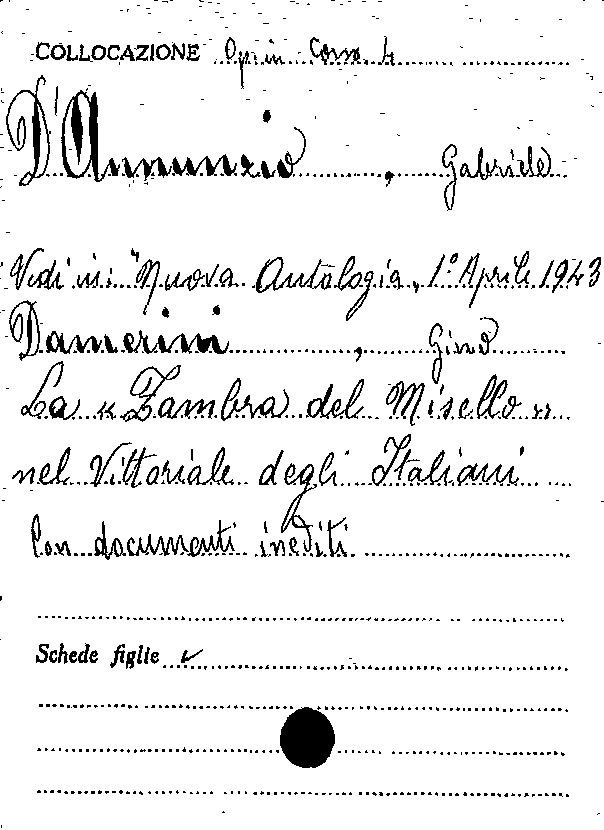 COLLOCAZIONE Op. in Cons. 4
D'Annunzio, Gabriele
Vedi in: "Nuova Antologia„ 1° Aprile 1943
Damerini, Gino
La «Zambra del Misello»
nel Vittoriale degli Italiani
Con documenti inediti
Schede figlie ✓